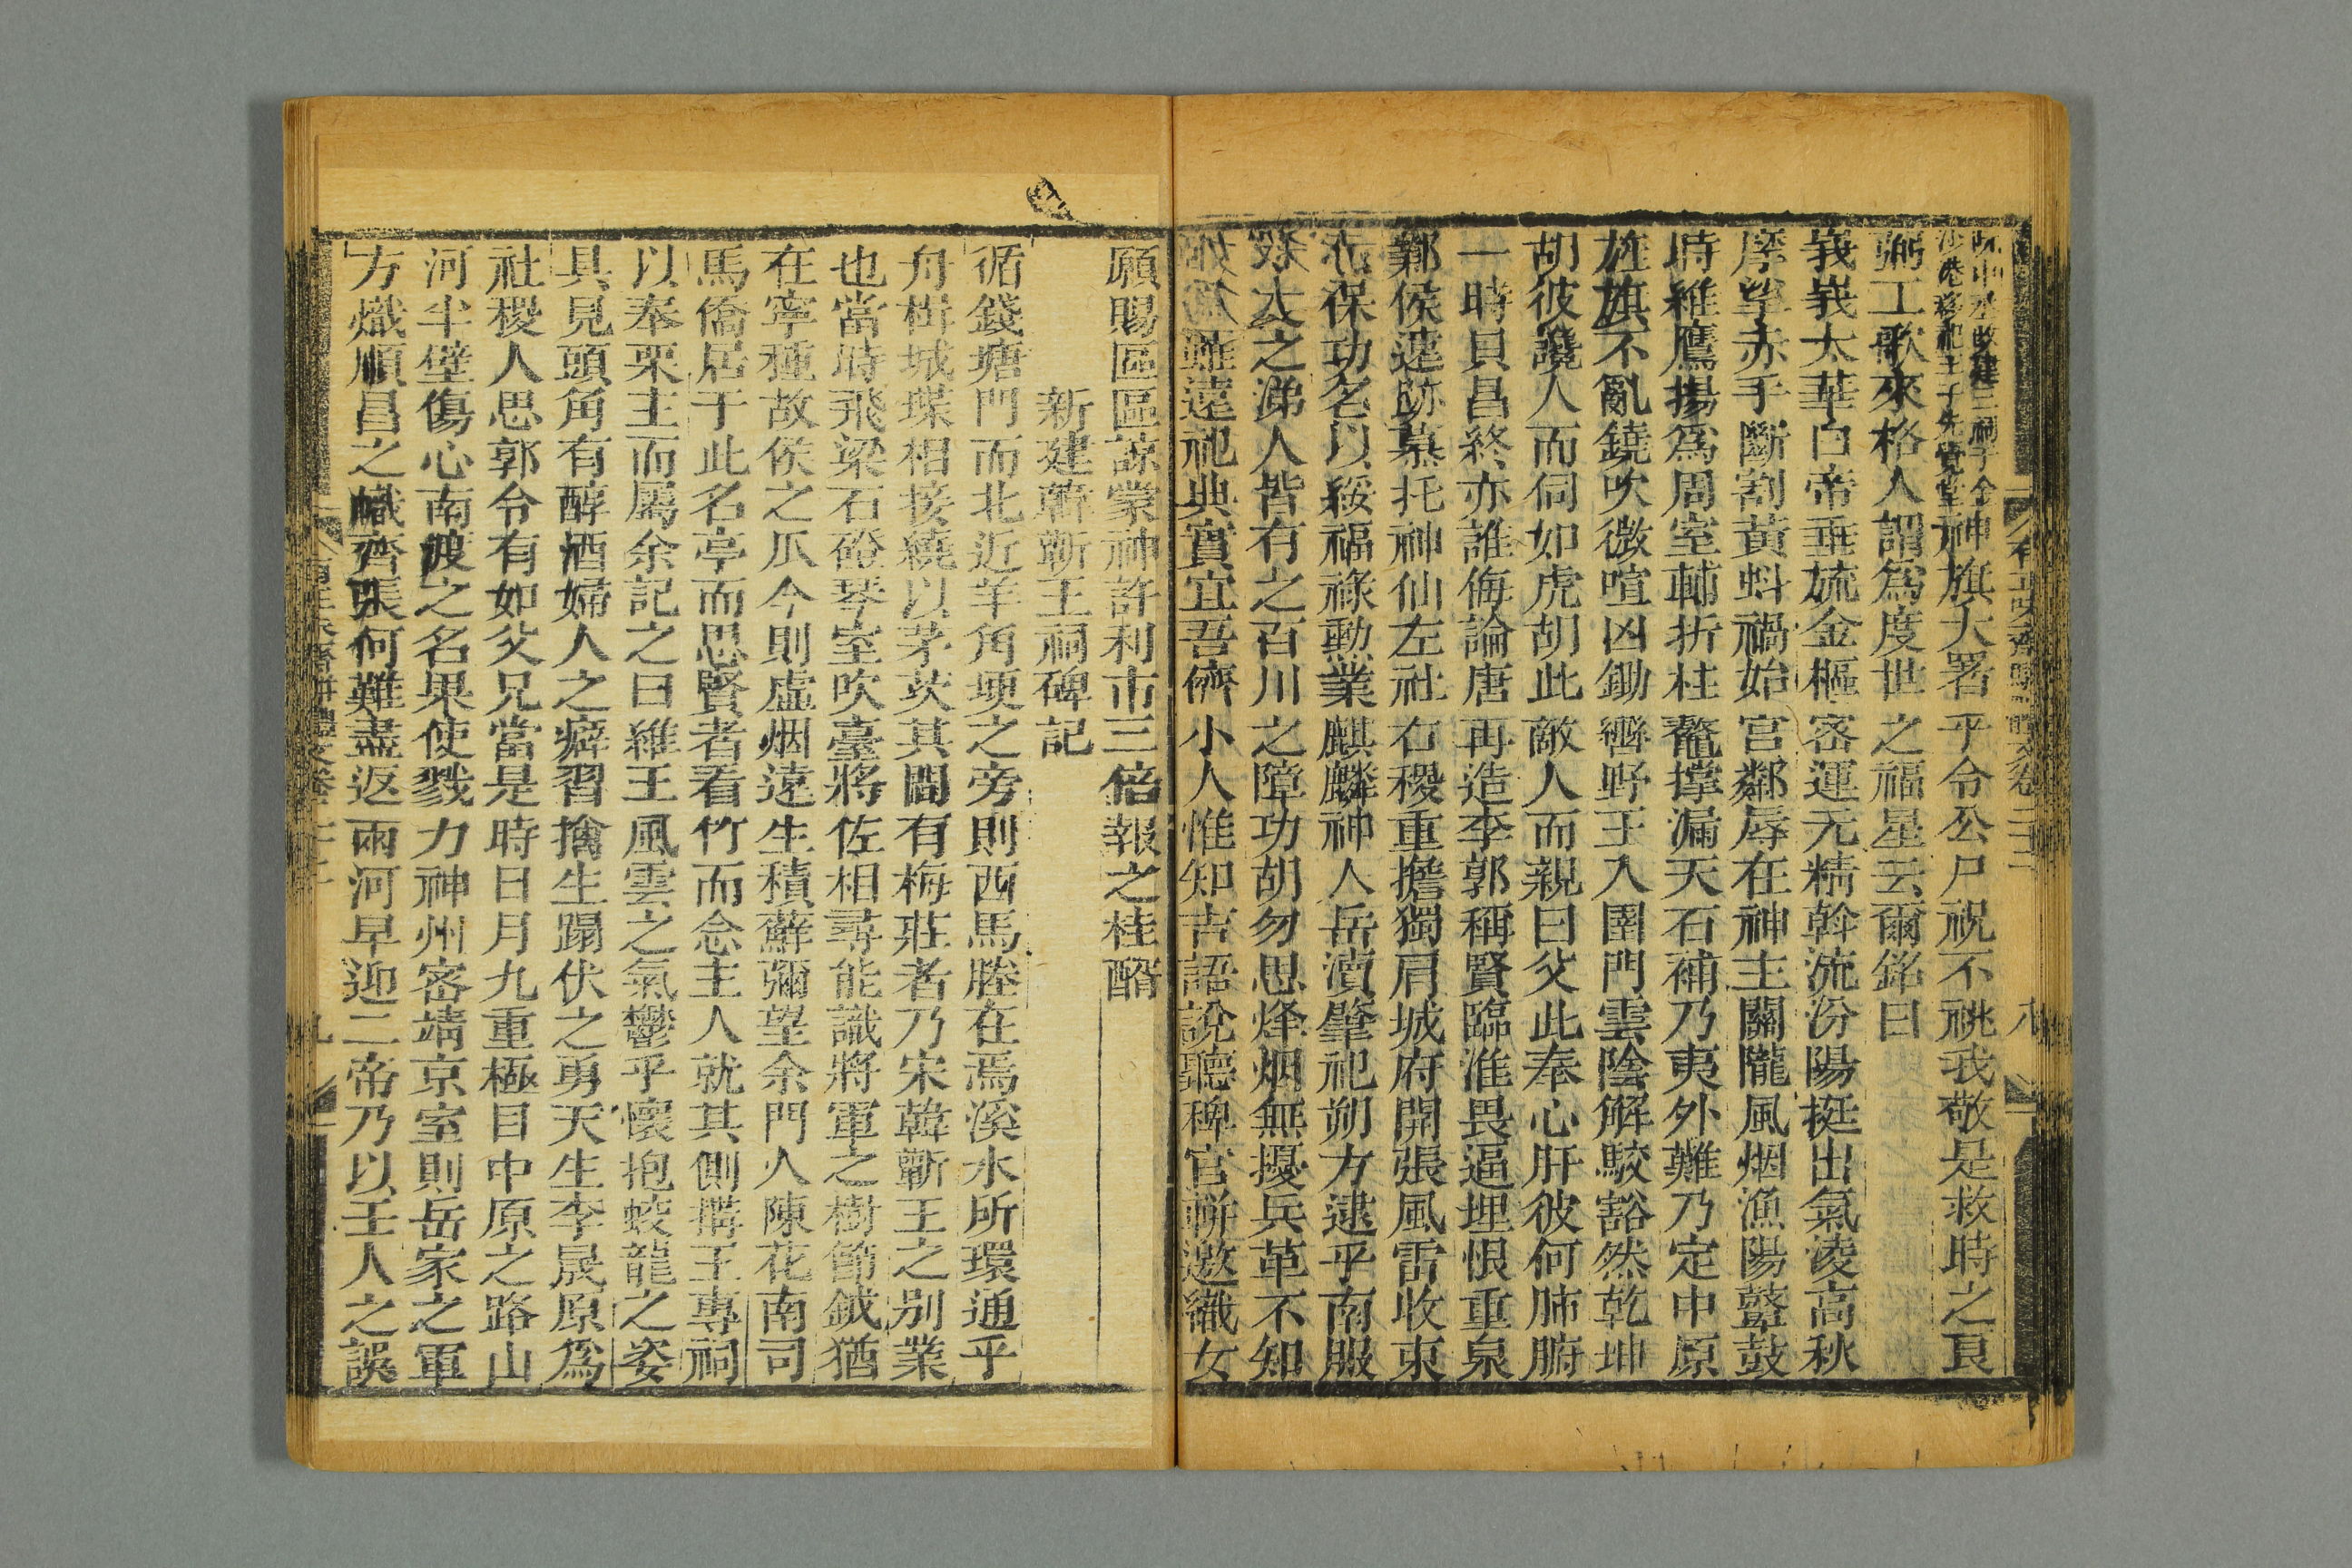 沙港移祀王子先覺堂神旗大署乎令公尸祝不祧我敬是救時之良
弼工歌來格人謂爲度世之福星云爾銘曰
峩峩太華白帝垂旒金樞密運元精斡流汾陽挺出氣凌高秋
摩挲赤手斷割黃蚪禍始宮鄰辱在神主關隴風烟漁陽鼙鼓
時維鷹揚爲周室輔折柱鼇撑漏天石補乃夷外難乃定中原
旌旗不亂鐃吹微喧凶鋤轡野王入圉門雲陰解駮豁然乾坤
胡彼讒人而伺如虎胡此敵人而親曰父此奉心肝彼何肺腑
一時貝昌終亦誰侮論唐再造李郭稱賢臨淮畏逼埋恨重泉
鄴侯遠跡慕托神仙左社右稷重擔獨肩城府開張風雷收束
保功名以綏福祿勳業麒麟神人岳瀆肇祀朔方逮乎南服
之涕人皆有之百川之障功胡勿思烽烟無擾兵革不知
雖遠祀典實宜吾儕小人惟知吉語說聽稗官耕邀織女
願賜區區諒蒙神許利市三倍報之桂醑
新建韓蘄王祠碑記
循錢塘門而北近羊角埂之旁則西馬塍在焉溪水所環通乎
舟楫城堞相接繞以茅茨其間有梅莊者乃宋韓蘄王之别業
也當時飛梁石磴琴室吹臺將佐相尋能識將軍之樹節鉞猶
在寧種故侯之瓜今則虛烟遠生積蘚彌望余門人陳花南司
馬僑居于此名亭而思賢者看竹而念主人就其側搆王專祠
以奉栗主而屬余記之曰維王風雲之氣鬱乎懷抱蛟龍之姿
具見頭角有醇酒婦人之癖習擒生蹋伏之勇天生李晟原爲
社稷人思郭令有如父兄當是時日月九重極目中原之路山
河半壁傷心南渡之名果使戮力神州密靖京室則岳家之軍
方熾順昌之幟齊張何難盡返兩河早迎二帝乃以壬人之誤